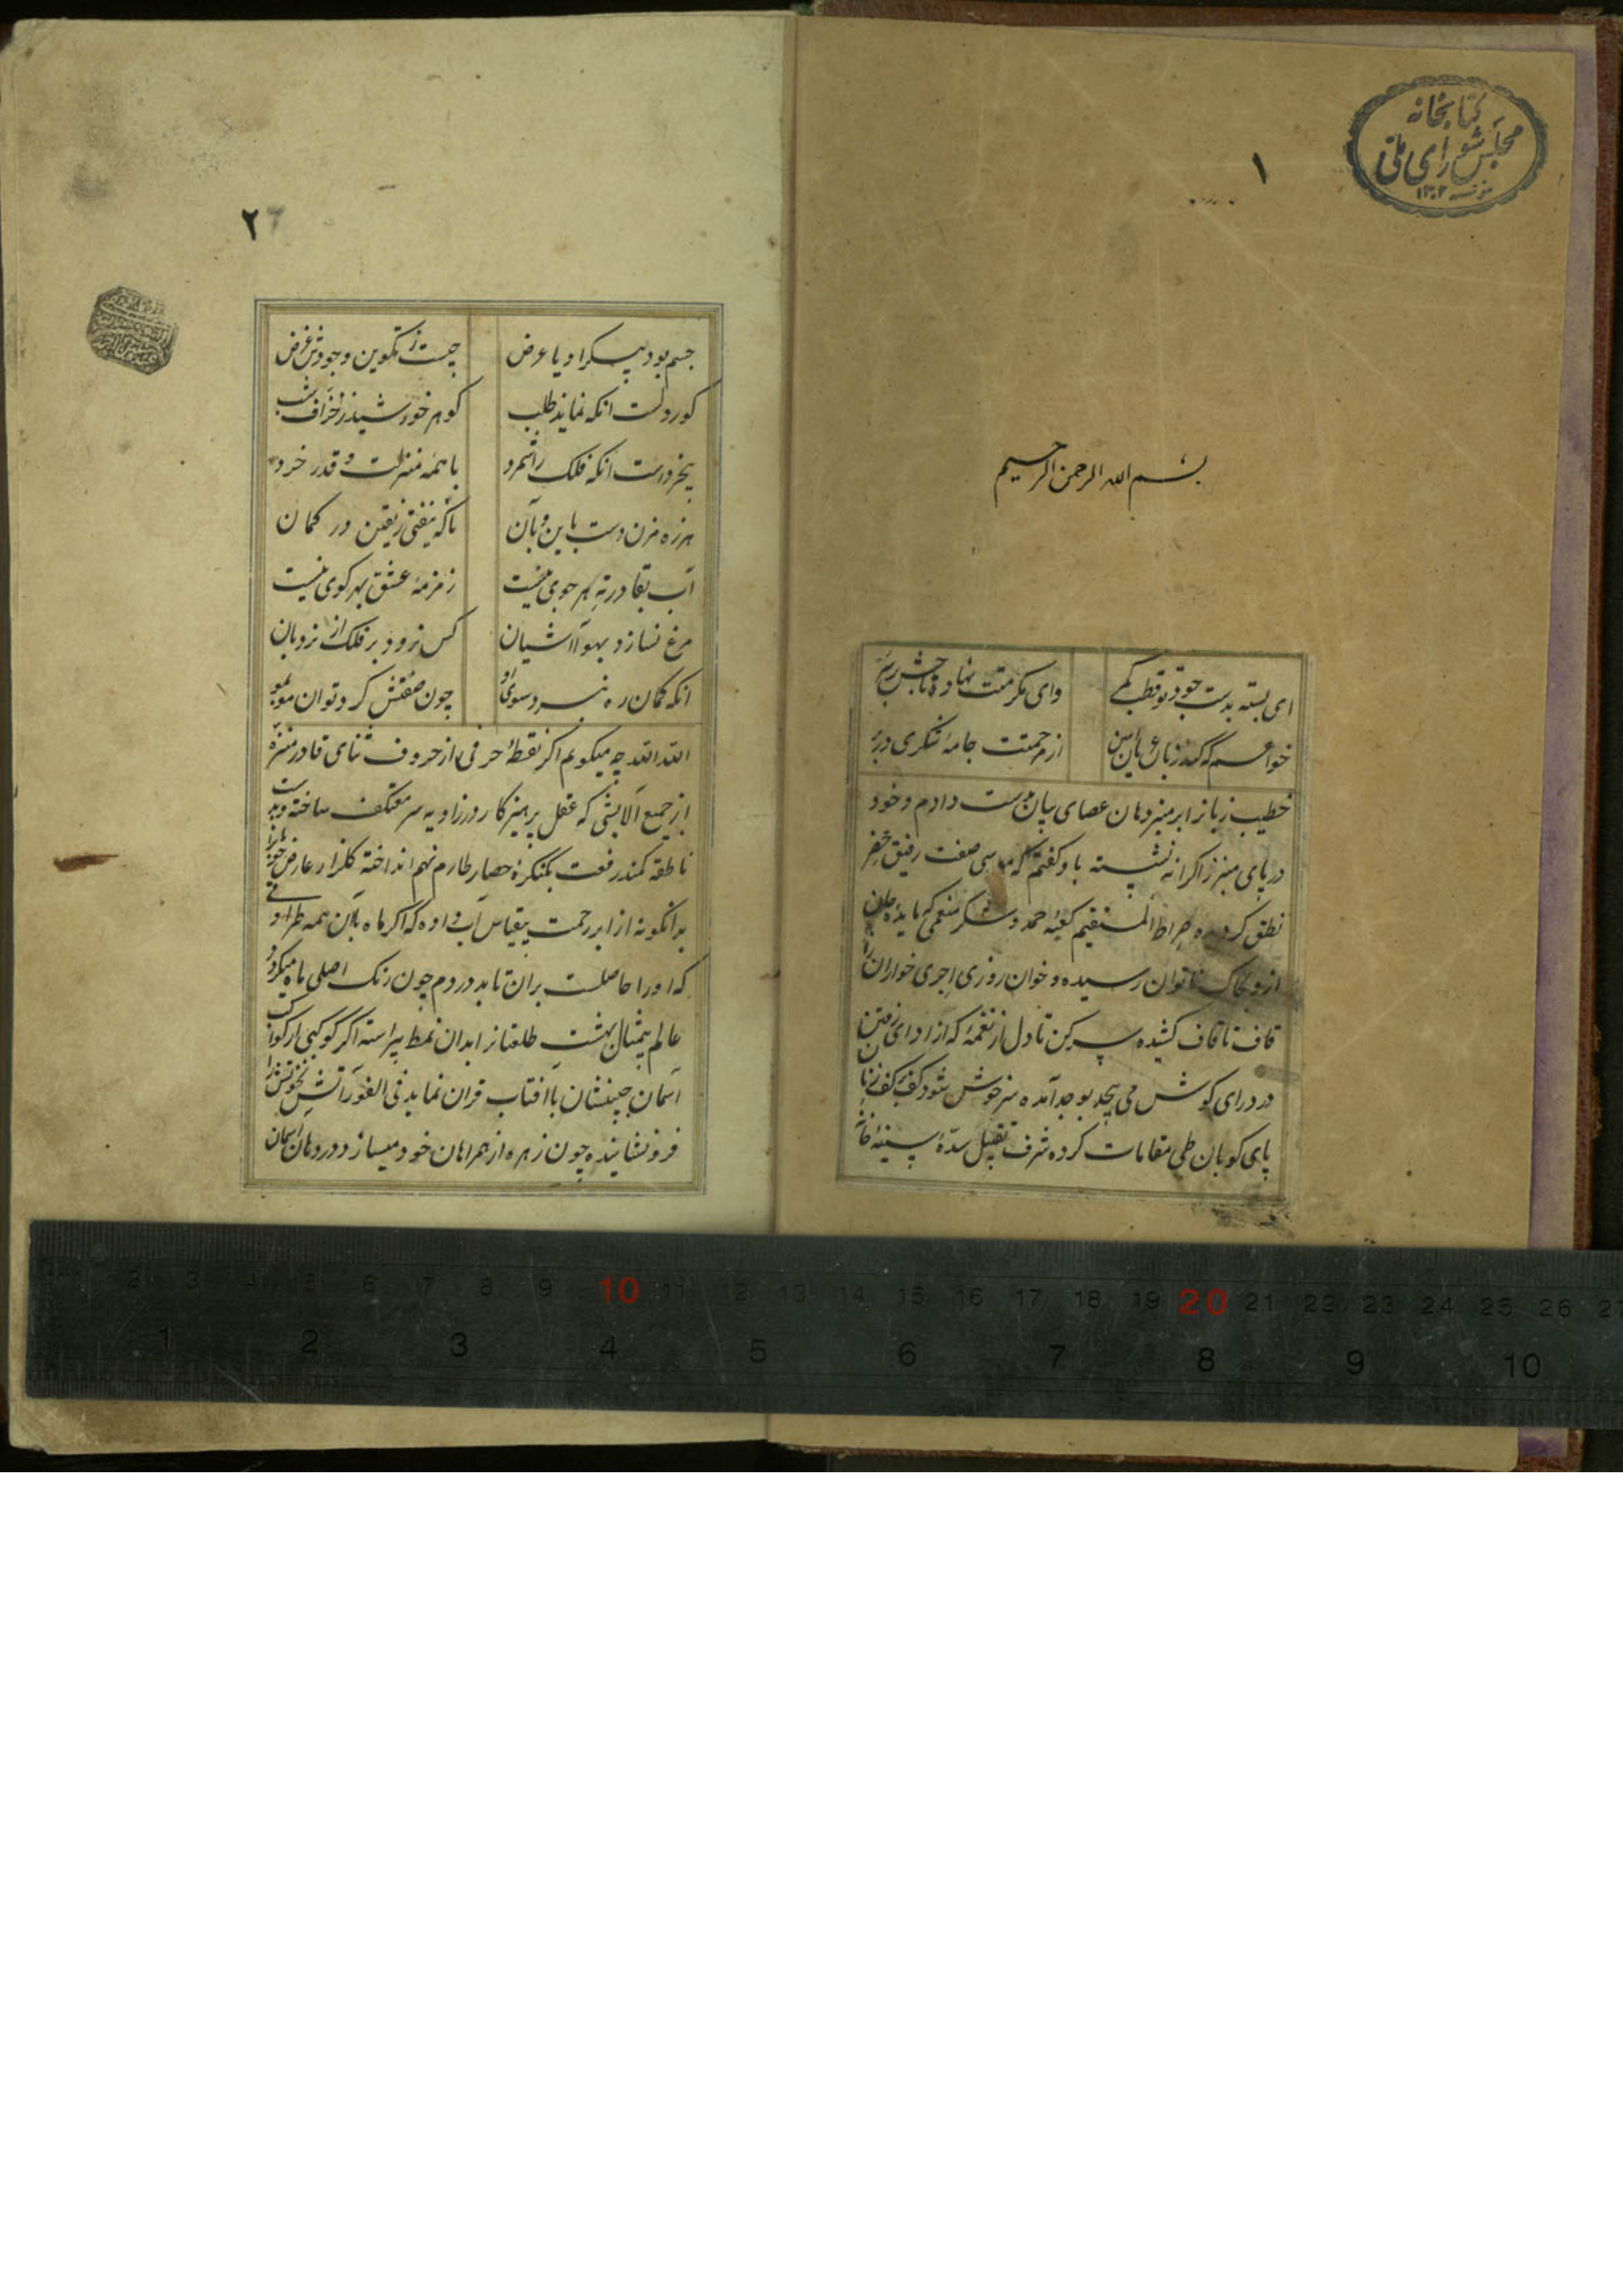 کتابخانه
مجلس شورای ملی
۱۳۰۲
۱
بسم الله الرحمن الرحیم
ای بسته بدست جود تو قطب کمر وای مکرمتت نهاده تاجش بر سر
خواهم که کند زبان عریان من از مرحمتت جامهٔ شکری در بر
خطیب زبانرا بر منبر دهان عصای بیان بدست دادم و خود
در پای منبر ذاکرانه نشسته باو گفتم که موسی صفت رفیق خضر
نطق کرده ره صراط المستقیم کعبه حمد و شکر منعمی که مایده
از و بخاک ناتوان رسیده و خوان روزی اجری خواران
قاف تا قاف کشیده سر کن تا دل از نغمهٔ که از ادای رفتن
در درای گوش می پیچد بوجد آمده سرخوش شود کف بر کف زنان
پای کوبان طی مقامات کرده شرف تقبیل سدهٔ سینهٔ
۲
جسم بود پیکر او یا عرض چیست ز تکوین وجودش غرض
کور دلست انکه نماید طلب گوهر خورشید ز خزاف شب
بیخرد است انکه فلک را شمرد با همه منزلت و قدر خرد
هرزه مزن دست باین و بآن تا که نیفتی ز یقین در گمان
آب بقا در ته هر جوی نیست زمزمهٔ عشق بهر کوی نیست
مرغ نسازد بهوا آشیان کس نرود بر فلک از نردبان
انکه گمان ره نبرد سوی او چون صفتش کرد توان مو بمو
الله الله چه میگویم اگر نقطهٔ حرفی از حروف ثنای قادر منزه
از جمیع آلایشی که عقل پرهیزکار در زاویه سر معتکف ساخته و بدست
ناطقه کمند رفعت بکنگرهٔ حصار طارم نهم انداخته گلزار عارض
بدانگونه از ابر رحمت بیقیاس آب داده که اگر ماه بان همه طراوتی
که او را حاصلست بران تابد در دم چون رنک اصلی ماه میکردد
عالم بیمثال بهشت طلعتانرا بدان نمط پیراسته اگر کوکبی از کواکب
آسمان جبینشان با آفتاب قران نماید فی الفور آتش نخوتش را
فرو نشانیده چون زهره از همراهان خود میسازد و در دهان